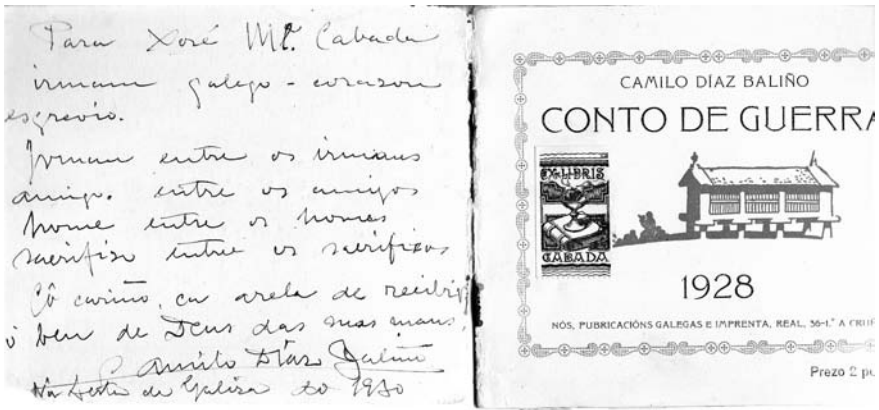 Para Xosé Mª. Cabada
irmann galego - corazon
esgrevio.
Irman entre os irmans
amigo entre os amigos
home entre os homes
sacrifizo entre os sacrifizos
Cô cariño, ca arela de recibir
o ben de Deus das suas mans,
Camilo Díaz Baliño
de Galiza do 1930
CAMILO DÍAZ BALIÑO
CONTO DE GUERRA
EX-LIBRIS
CABADA
1928
NÓS, PUBRICACIÓNS GALEGAS E IMPRENTA, REAL, 36-1.° A CRUÑ
Prezo 2 pe